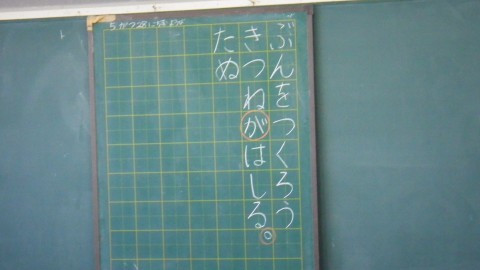 5がつ28にちきようび
ぶんをつくろう
きつねがはしる。
たぬ